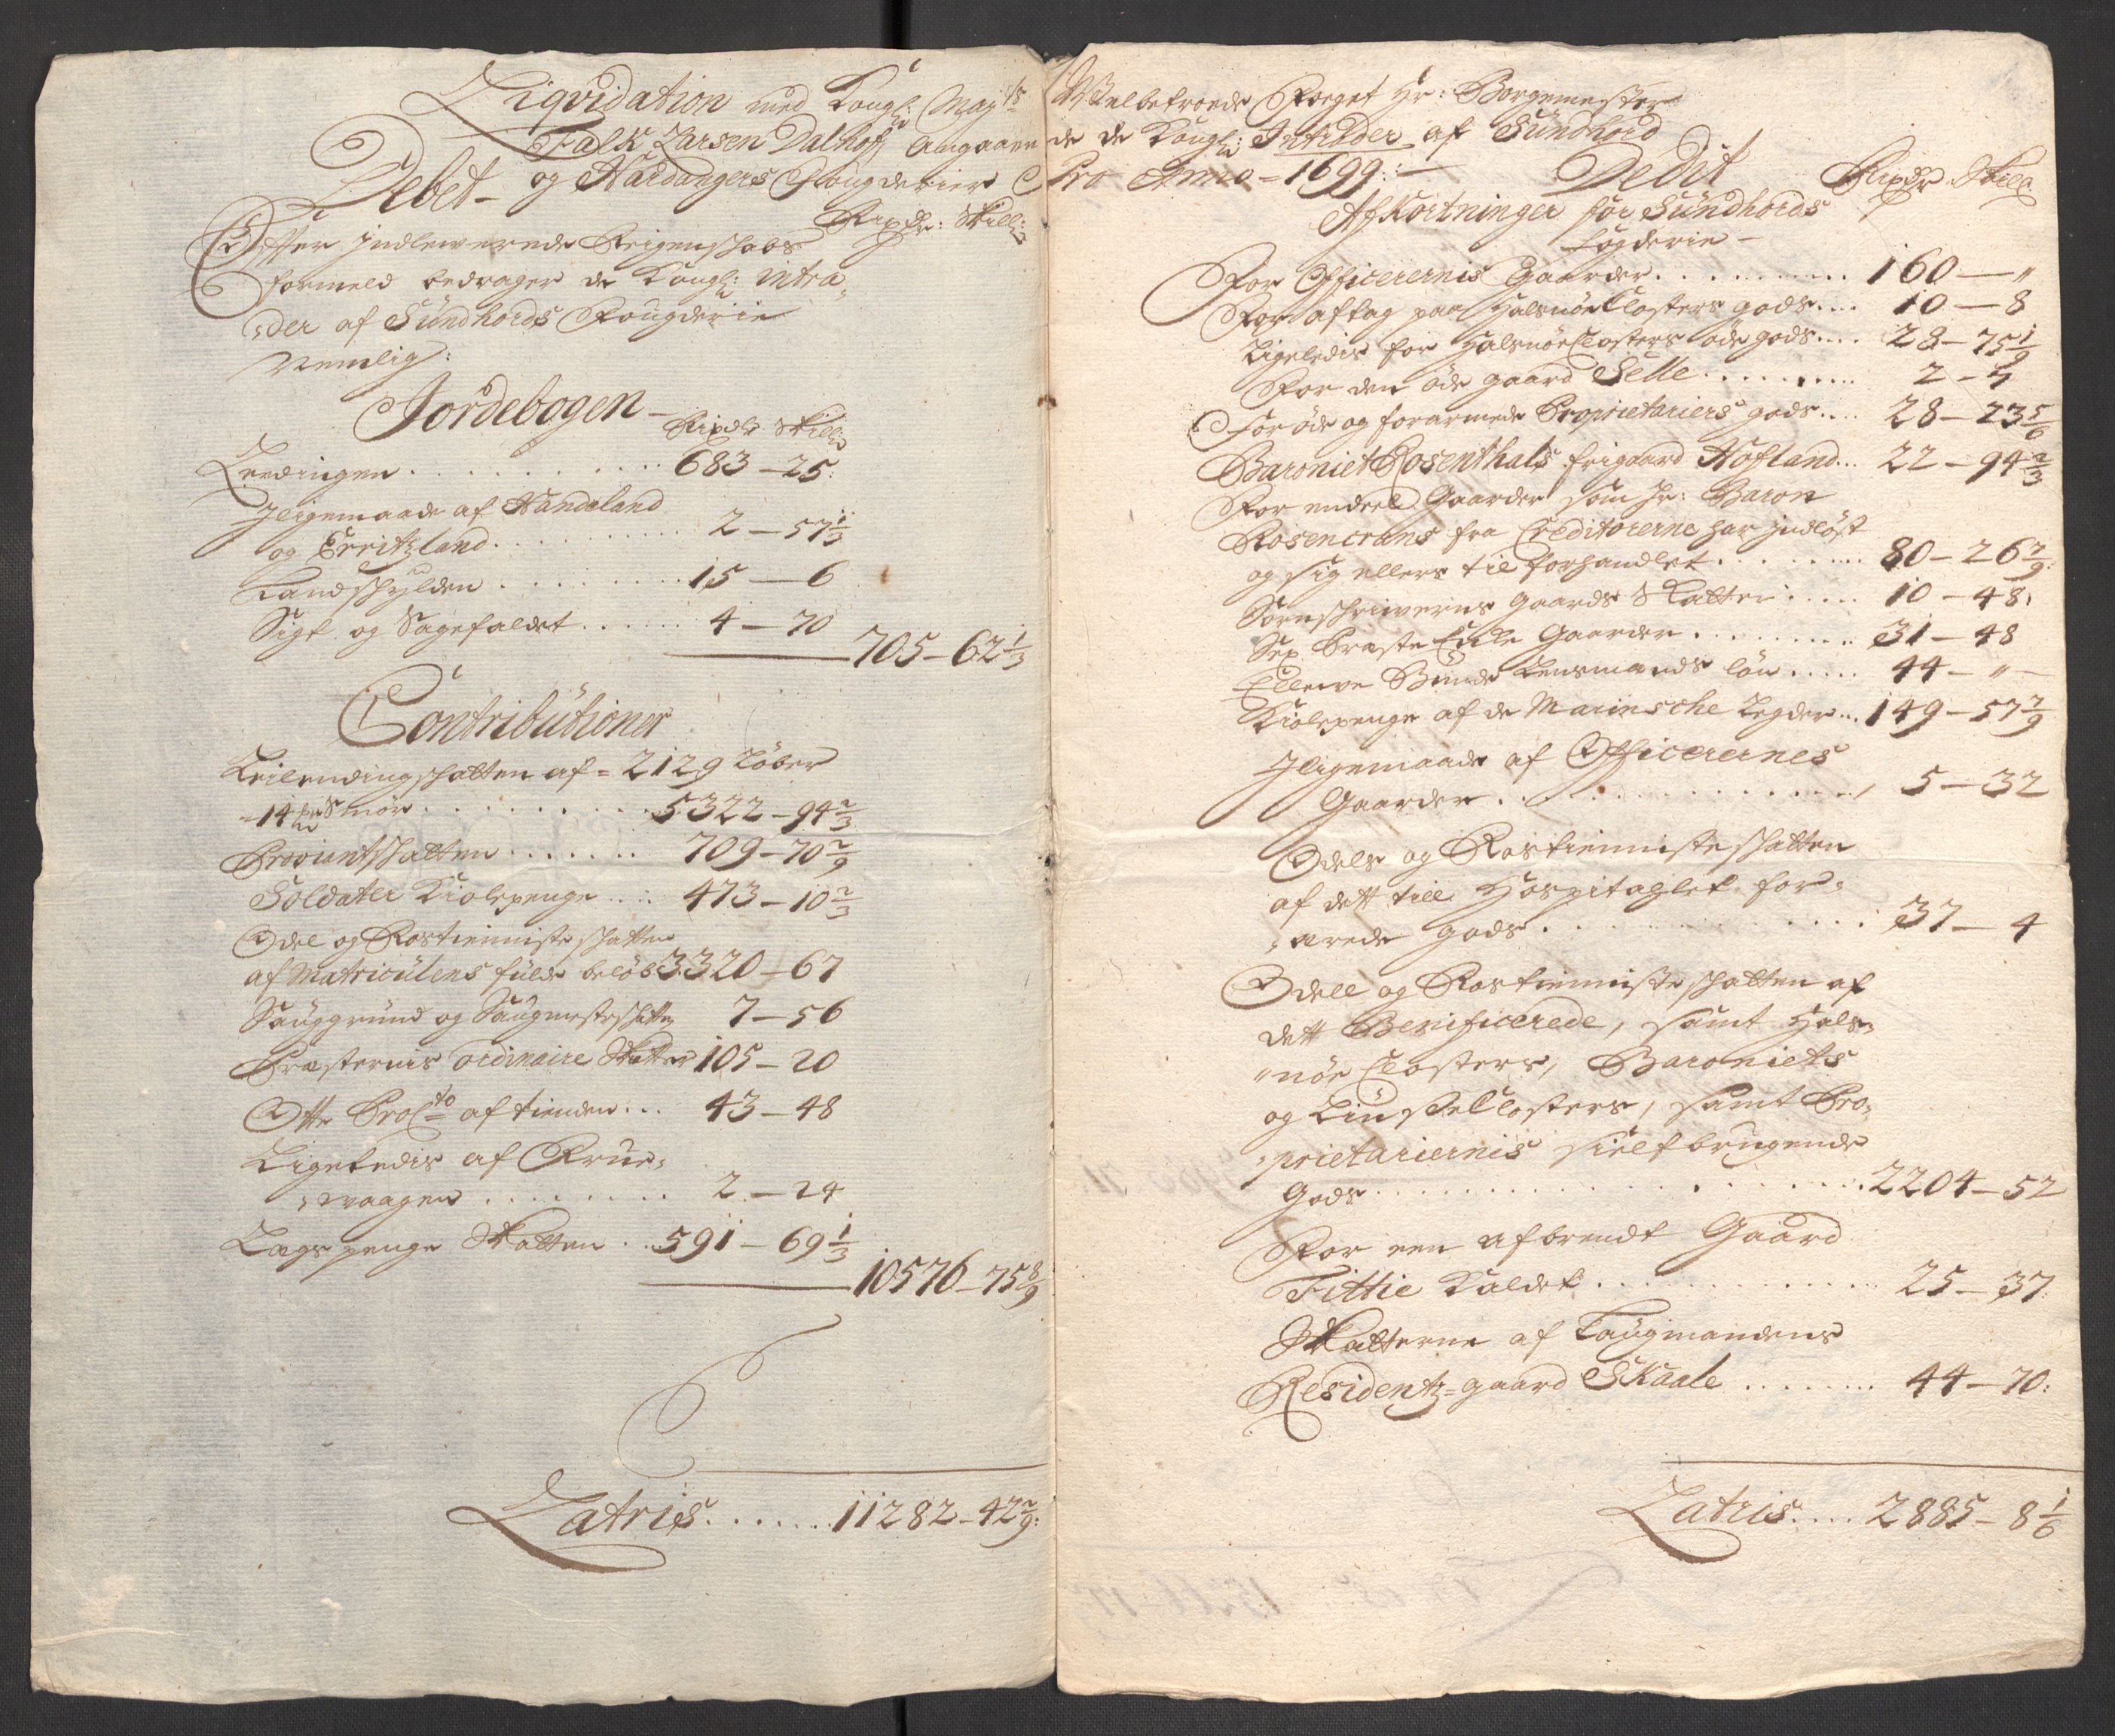 Liqvidation med Kongl: May:ts Welbetroede Foeget Hr: Borgemester
Falk Larsen Dalhoff Angaaende de Kongl: Intrader af Sundhord
Debet og Hardangers Fougderier Pro Anno 1699:
Ripdlr: Skill:
Efter Indlewerede Reigenschabs
formeld bedrager de Kongl: Intra-
der af Sundhords Fougderie
Nemlig:
Jordebogen
Ripdlr Skill:
Leedingen . . . 683 – 25:
Iligemaade af Handeland
og Erritzland . . . 2 – 57 1/3
Landschylden . . . 15 – 6
Sigt og Sagefaldet . . . 4 – 70
705 – 62 1/3
Contributioner
Leilendingschatten af = 2129 Løber
14 Smør . . . 5322 – 94 2/3
Proviantschatten . . . 709 – 70 2/9
Soldater Kiolepenge . . . 473 – 10 2/3
Odel og Rostienniste schatten
af Matriculens fulde beløb 3320 – 67
Sauggrund og Saugmesteschatten 7 – 56
Præsternis ordinaire Skatter 105 – 20
Otte Procto af tienden . . . 43 – 48
Ligeledis af Krue-
waagen . . . 2 – 24
Lægs penge Skatten . . 591 – 69 1/3
10576 – 75 8/9
Latris . . . 11282 – 42 2/9:
Dedit
Ripdr Skill:
Afkortninger for Sundhords
fogderie
For Officerernis Gaarder . . . 160 – "
For aftag paa Halsnøe Closters gods . . . 10 – 8
Ligeledis for Halsnøe Closters øde gods . . . 28 – 75 1/9
For den øde gaard Selle . . . 2 – 4
For øde og forarmede Proprietariers gods . . . 28 – 23 5/6
Baroniet Rosenthals frigaard Hofland . . . 22 – 94 2/3
For endeel Gaarder som Hr: Baron
Rosencrans fra Creditorerne har indløst
og sig ellers til forhandlet . . . 80 – 26 7/9:
Sorenschriwerens gaards Skatter . . . 10 – 48:
Sex Præste Encke Gaarder . . . 31 – 48
Ellewe Bunde Lensmænds løn . . . 44 – "
Kiolepenge af de Marinsche Legder . . . 149 – 57 7/9
Iligemaade af Officerernes
Gaarder . . . 5 – 32
Odels og Rostienniste schatten
af dett till Hospitaglet for-
ærede gods . . . 37 – 4
Odell og Rostienniste schatten af
dett Benificerede, samt Hals-
nøe Closters, Baroniets
og Lius Closters, samt Pro-
prietariernis sielfbrugende
Gods . . . 2204 – 52
For een afbrendt Gaard
Tittie Kaldet . . . 25 – 37:
Skatterne af Laugmandens
Residentz-gaard Skaale . . . 44 – 70:
Latris . . . 2885 – 8 1/6